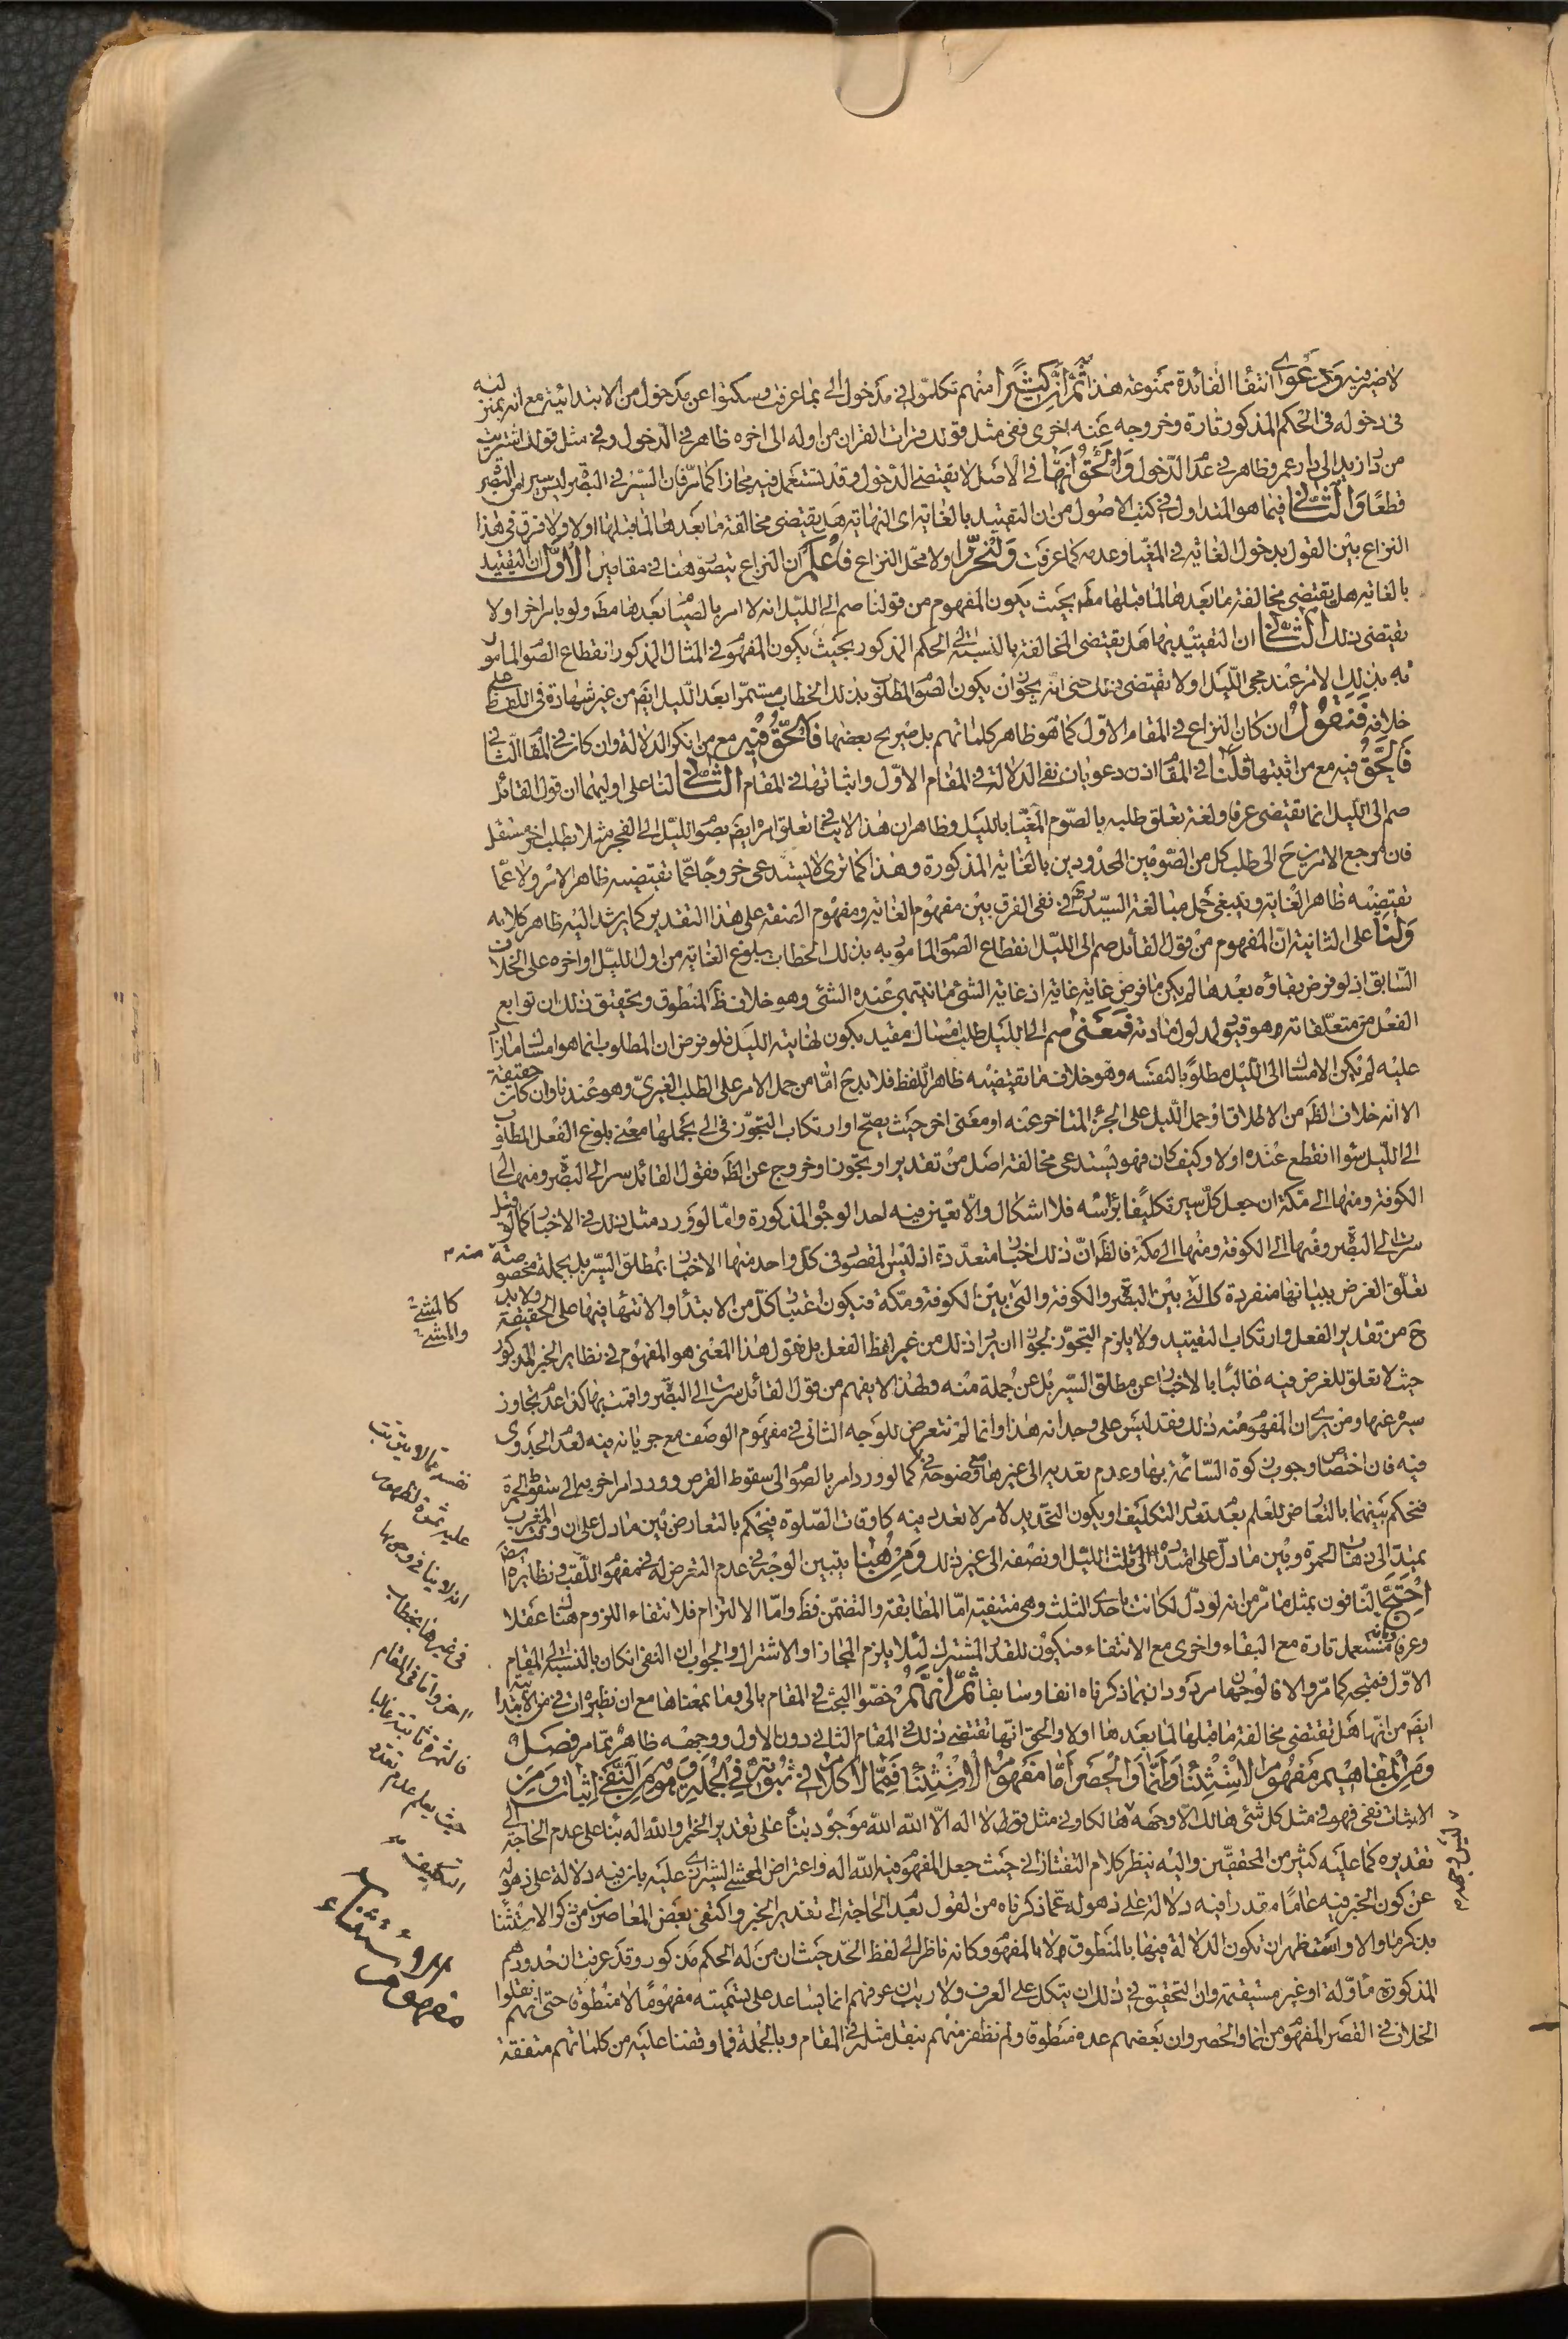 لا ضير فيه ودعوى انتفاء الفائدة ممنوعة هذا ثم ان كثيرا منهم تكلموا في مدخول الى بما عرفت وسكتوا عن مدخول من الابتدائية مع انه بمنزلته
في دخوله في الحكم المذكور تارة وخروجه عنه اخرى ففي مثل قولك قرات القران من اوله الى اخره ظاهر في الدخول وفي مثل قولك اشتريت
من دار زيد الى دار عمرو ظاهر في عدم الدخول والحق انها في الاصل لا يقتضي الدخول وقد تستعمل فيه مجازا كما مر فان السير في البصرة ليس سيرا من البصرة
قطعا والثاني فيما هو المتداول في كتب الاصول من ان التقييد بالغاية اى النهاية هل يقتضي مخالفة ما بعدها لما قبلها او لا ولا فرق في هذا
النزاع بين القول بدخول الغاية في المغيا وعدمه كما عرفت ولنحرر اولا محل النزاع فاعلم ان النزاع يتصور هنا في مقامين الاول ان التقييد
بالغاية هل يقتضي مخالفة ما بعدها لما قبلها مط بحيث يكون المفهوم من قولنا صم الى الليل انه لا امر بالصيام بعدها مط ولو بامر اخر او لا
يقتضي ذلك الثاني ان التقييد بها هل يقتضي المخالفة بالنسبة الى الحكم المذكور بحيث يكون المفهوم في المثال المذكور انقطاع الصوم المامور
به بذلك الامر عند مجئ الليل او لا يقتضي ذلك حتى انه يجوز ان يكون الصوم المطلوب بذلك الخطاب مستمرا بعد الليل ايضا من غير شهادة في اللفظ على
خلافه فنقول ان كان النزاع في المقام الاول كما هو ظاهر كلماتهم بل صريح بعضها فالحق فيه مع من انكر الدلالة وان كان في المقام الثاني
فالحق فيه مع من اثبتها فلنا في المقام اذن دعويان نفي الدلالة في المقام الاول واثباتها في المقام الثاني لنا على اوليهما ان قول القائل
صم الى الليل انما يقتضي عرفا ولغة تعلق طلبه بالصوم المغيا بالليل وظاهر ان هذا لا ينافي تعلق امره ايضا بصوم الليل الى الفجر مثلا بطلب اخر مستقل
فان مرجع الامرين ح الى طلب كل من الصومين المحدودين بالغاية المذكورة وهذا كما ترى لا يستدعي خروجا عما تقتضيه ظاهر الامر ولا عما
تقتضيه ظاهر الغاية وينبغي حمل مبالغة السيد ره في نفي الفرق بين مفهوم الغاية ومفهوم الصفة على هذا التقدير كما يرشد اليه ظاهر كلامه
ولنا على الثانية ان المفهوم من قول القائل صم الى الليل انقطاع الصوم المامور به بذلك الخطاب ببلوغ الغاية من اول الليل او اخره على الخلاف
السابق اذ لو فرض بقاؤه بعدها لم يكن ما فرض غاية غاية اذ غاية الشئ ما ينتهي عنده الشئ وهو خلاف ظ المنطوق وتحقيق ذلك ان توابع
الفعل من متعلقاته وهو قيود لمدلول مادته فمعنى صم الى الليل طلب امساك مقيد بكون نهايته الليل فلو فرض ان المطلوب انما هو امساك ما زاد
عليه لم يكن الامساك الى الليل مطلوبا لنفسه وهو خلاف ما تقتضيه ظاهر اللفظ فلا بد ح اما من حمل الامر على الطلب الغيري وهو عندنا وان كان حقيقة
الا انه خلاف الظ من الاطلاق او حمل الليل على الجزء المتاخر عنه او معنى اخر حيث يصح او ارتكاب التجوز في الى بجعلها بمعنى بلوغ الفعل المطلوب
الى الليل سواء انقطع عنده او لا وكيف كان فهو يستدعي مخالفة اصل من تقدير او تجوز او خروج عن الظ فقول القائل سر الى البصرة ومنها الى
الكوفة ومنها الى مكة ان جعل كل سير تكليفا برأسه فلا اشكال والا تعين فيه احد الوجوه المذكورة واما لو ورد مثل ذلك في الاخبار كما لو قيل
سرت الى البصرة ومنها الى الكوفة ومنها الى مكة فالظ ان ذلك اخبار متعددة اذ ليس المقصود في كل واحد منها الاخبار بمطلق السير بل بجملة مخصوصة منه
تعلق الغرض ببيانها منفردة كالتي بين البصرة والكوفة والتي بين الكوفة ومكة فيكون اعتبار كل من الابتداء والانتهاء فيها على الحقيقة ولا بد
ح من تقدير الفعل وارتكاب التقييد ولا يلزم التجوز لجواز ان يراد ذلك من غير لفظ الفعل بل نقول هذا المعنى هو المفهوم في نظاير الخبر المذكور
حيث لا تعلق للغرض فيه غالبا بالاخبار عن مطلق السير بل عن جملة منه ولهذا لا يفهم من قول القائل سرت الى البصرة واقمت بها كذا عدم تجاوز
سيره عنها ومن يرى ان المفهوم منه ذلك فقد لبس على وجدانه هذا وانما لم نتعرض للوجه الثاني في مفهوم الوصف مع جريانه فيه لعدم الجدوى
فيه فان اختصاص وجوب زكوة السائمة بها وعدم تعديه الى غيرها مع وضوحه كما لو ورد امر بالصوم الى سقوط القرص وورد امر اخر به الى سقوط الحمرة
فيحكم بينهما بالتعارض للعلم بعدم تعدد التكليف او يكون التحديد لامر لا تعدد فيه كاوقات الصلوة فيحكم بالتعارض بين ما دل على ان وقت المغرب
يمتد الى ذهاب الحمرة وبين ما دل على امتداده الى ثلث الليل او نصفه الى غير ذلك ومن هنا يتبين الوجه في عدم التعرض له في مفهوم اللقب ونظايره ايضا
احتج النافون بمثل ما مر من انه لو دل لكانت باحدى الثلث وهي منتفية اما المطابقة والتضمن فظ واما الالتزام فلانتفاء اللزوم هنا عقلا
وعرفا وبانه تستعمل تارة مع البقاء واخرى مع الانتفاء فيكون للقدر المشترك لئلا يلزم المجاز او الاشتراك والجواب ان النفي ان كان بالنسبة الى المقام
الاول فمتجه كما مر والا فالوجهان مردودان بما ذكرناه انفا وسابقا ثم انهم خصوا البحث في المقام بالى وما بمعناها مع ان نظيره ات في من الابتدائية
ايضا من انها هل تقتضي مخالفة ما قبلها لما بعدها او لا والحق انها تقتضي ذلك في المقام الثاني دون الاول ووجهه ظاهر مما مر فصل
ومن المفاهيم مفهوم الاستثناء وانما والحصر اما مفهوم الاستثناء فمما لا كلام في ثبوته في الجملة وهو من النفي اثبات ومن
الاثبات نفي فهو في مثل كل شئ هالك الا وجهه هالكا وفي مثل قوله لا اله الا الله الله موجود بناء على تقدير الخبر او الله اله بناء على عدم الحاجة الى
تقديره كما عليه كثير من المحققين واليه ينظر كلام التفتازاني حيث جعل المفهوم فيه الله اله واعتراض المحشي الشيرازي عليه بان فيه دلالة على ذهوله
عن كون الخبر فيه عاما مقدرا فيه دلالة على ذهوله عما ذكرناه من القول بعدم الحاجة الى تقدير الخبر واكتفى بعض المعاصرين من ذكر الاستثناء
بذكر ما والا واستظهر ان تكون الدلالة فيها بالمنطوق لا بالمفهوم وكانه ناظر الى لفظ الحد حيث ان من له الحكم مذكور وقد عرفت ان حدودهم
المذكورة ماولة او غير مستقيمة وان التحقيق في ذلك ان يتكل على العرف ولا ريب ان عرفهم انما يساعد على تسميته مفهوما لا منطوقا حتى انهم نقلوا
الخلاف في القصر المفهوم من انما والحصر وان بعضهم عده منطوقا ولم نظفر منهم بنقل مثله في المقام وبالجملة فما وقفنا عليه من كلماتهم متفقة
كالمشئ
والمشئ
نفسه مما لا يترتب
عليه ثمرة لظهور
انه لا ينافي وجوبها
في غيرها بخطاب
اخر واما في المقام
فالثمرة ثابتة غالبا
حيث يعلم عدم تعدد
التكليف
مفهوم الاستثناء
ليس الا وجهه